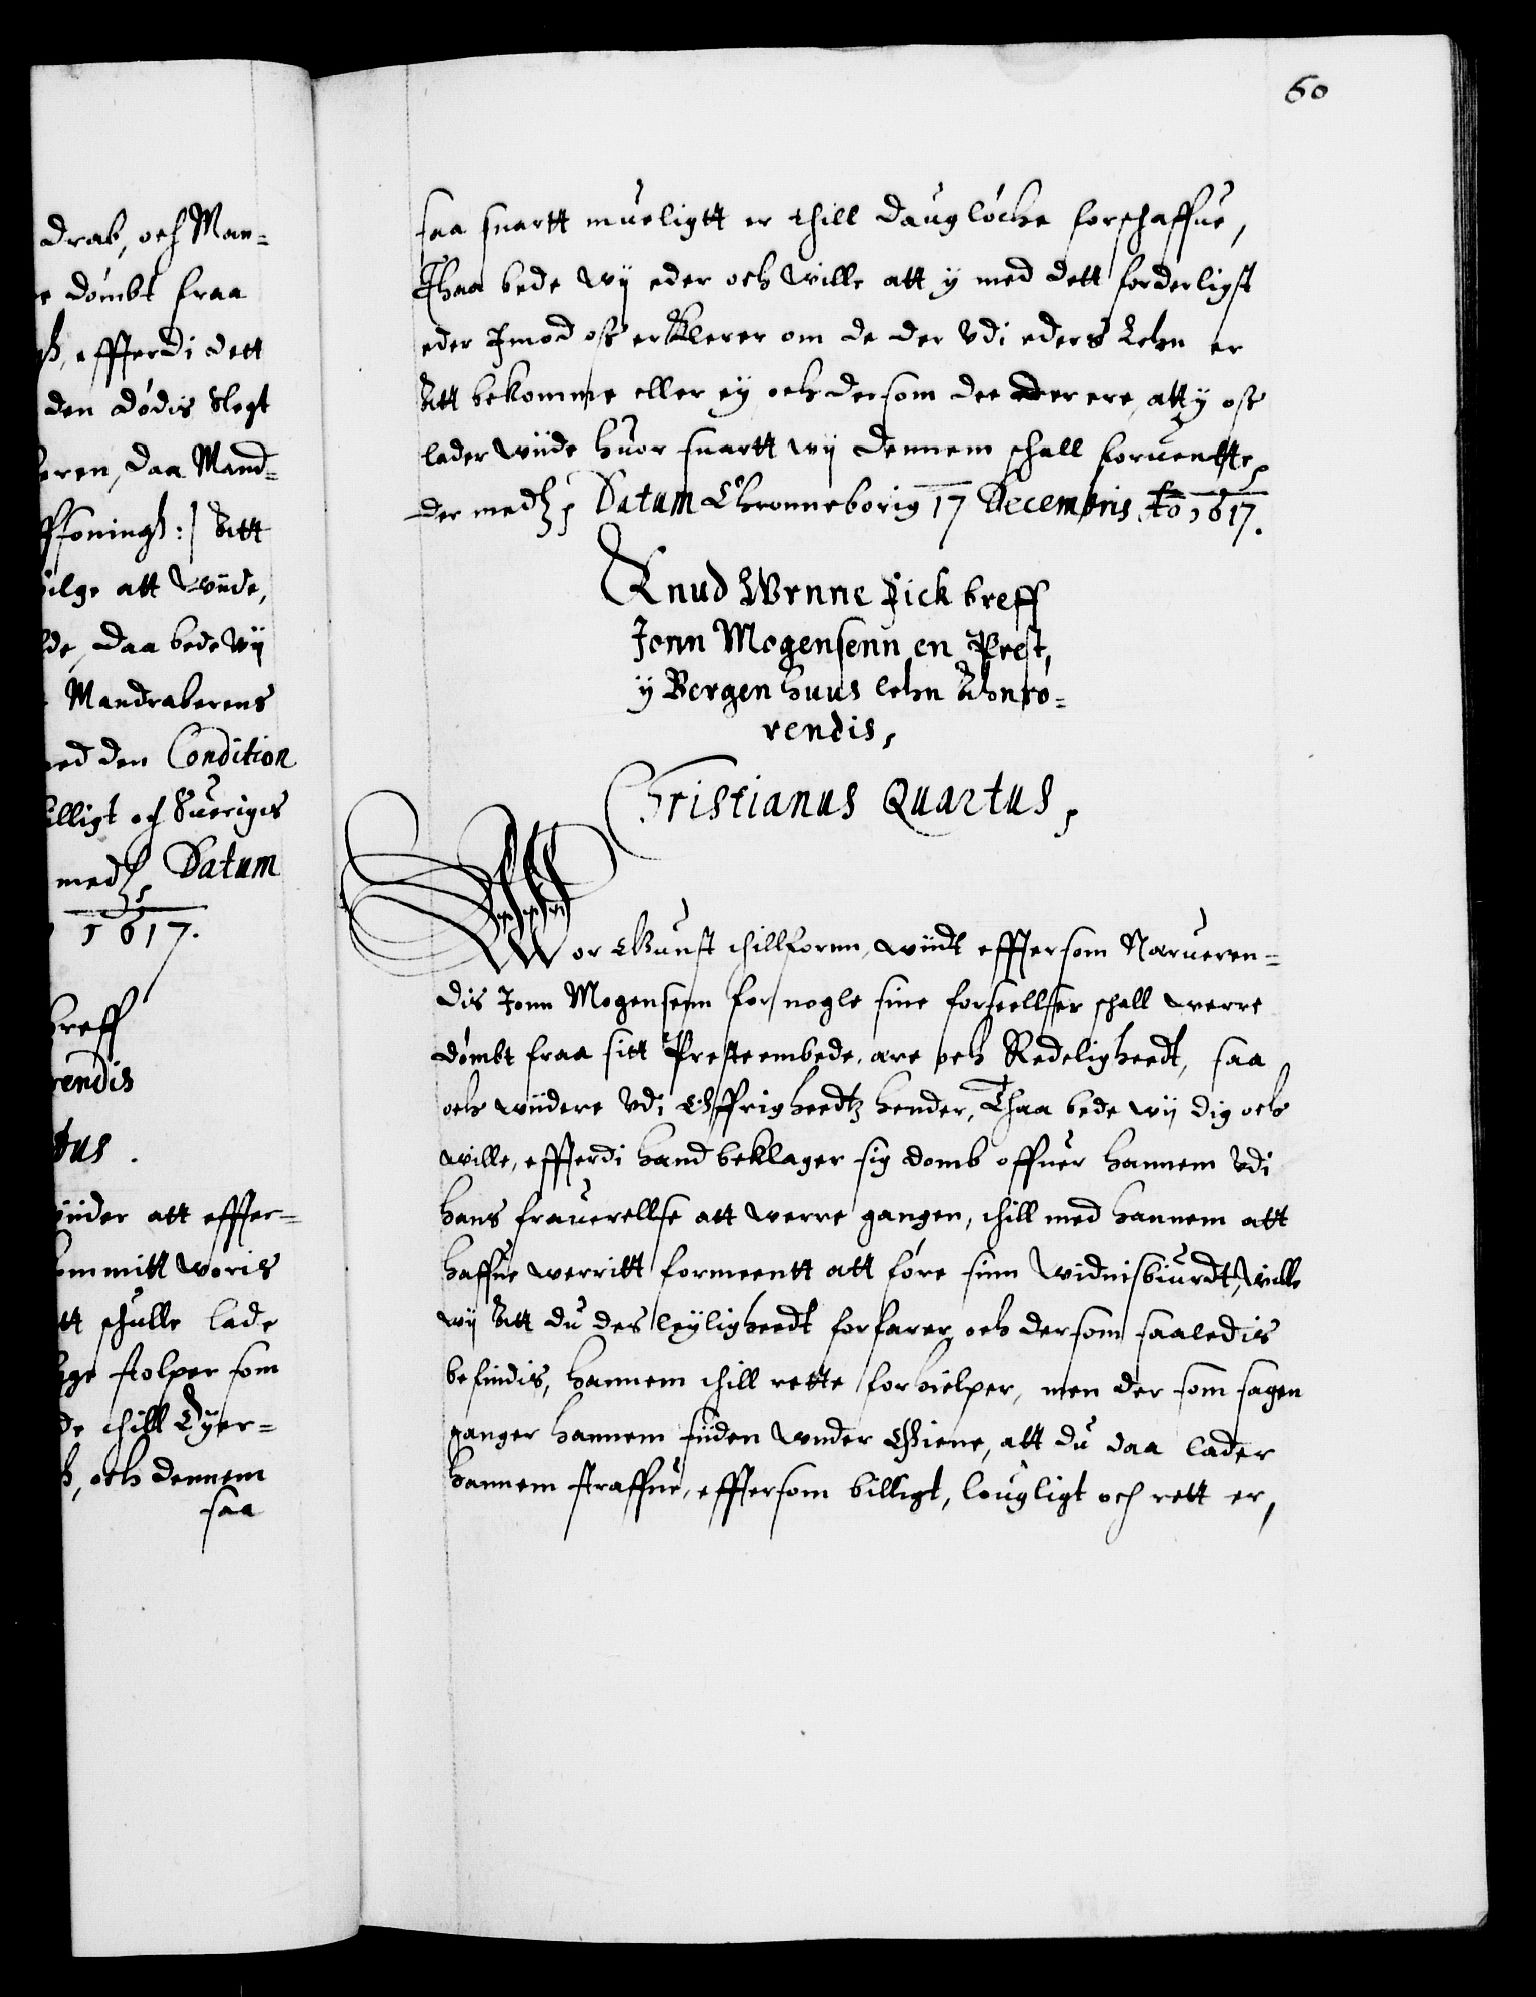 60
drab, och Man-
dømbt fraa
effterdi dett
den dødis slegt
eren, daa Mand-
ffoningh:/ Att
ilge att wiide,
de, daa bede wij
Mandraberens
ed den Condition
illigt och Sueriges
medh, Datum
1617.
breff
rendis
tus.
iider att effter-
ommitt woris
tt schulle lade
ge stolper som
de thill Eyer-
h, och dennem
saa
saa snartt mueligtt er thill daugløche forschaffue,
Thaa bede wij eder och wille att y med dett forderligst
eder Imod oss erklerer om de der Vdi eders Lehn er
Att bekomme eller ey och dersom dee der ere, att y oss
lader wiide huor snartt wij dennem schall foruentte,
der medh, Datum Chronneborig 17 Decembris Ao 1617.
Knud Wrnne fick breff
Jonn Mogensenn en Prest,
y Bergenhuus lehn Ahnrø-
rendis,
Christianus Quartus,
Wor Gunst thillfornn, wiidt effter som Narueren-
dis Jonn Mogensenn for nogle sine forseellser schall werre
dømbt fraa sitt Preste embede, ære och Redeligheedt, saa
och wiidere Vdi Øffrigheedtz hender, Thaa bede wij dig och
wille, effterdi hand beklager sig domb offuer hannem Vdi
hans frauerellse att werre gangen, thill med hannem att
haffue werritt formeentt att føre sinn widnisbiurdt, wille
wij Att du des leyligheedt forfarer och dersom saaledis
befindis, hannem thill rette forhielper, men der som sagen
ganger hannem siiden wnder Øiene, att du daa lader
hannem straffue, effter som billigt, lougligt och rett er,